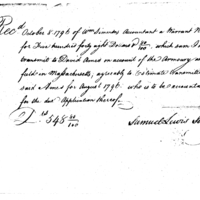 Rec.d October 8. 1796 of Wm Simmons Accountant a Warrant
for Five hundred forty eight Dollars & 20/100 which sum I
transmit to David Ames on account of the Armoury
field in Massachusetts, agreeably to Estimate transmitted
said Ames for August 1796. who is to be accountable
for the due Application thereof.
D. 548 20/100
Samuel Lewis